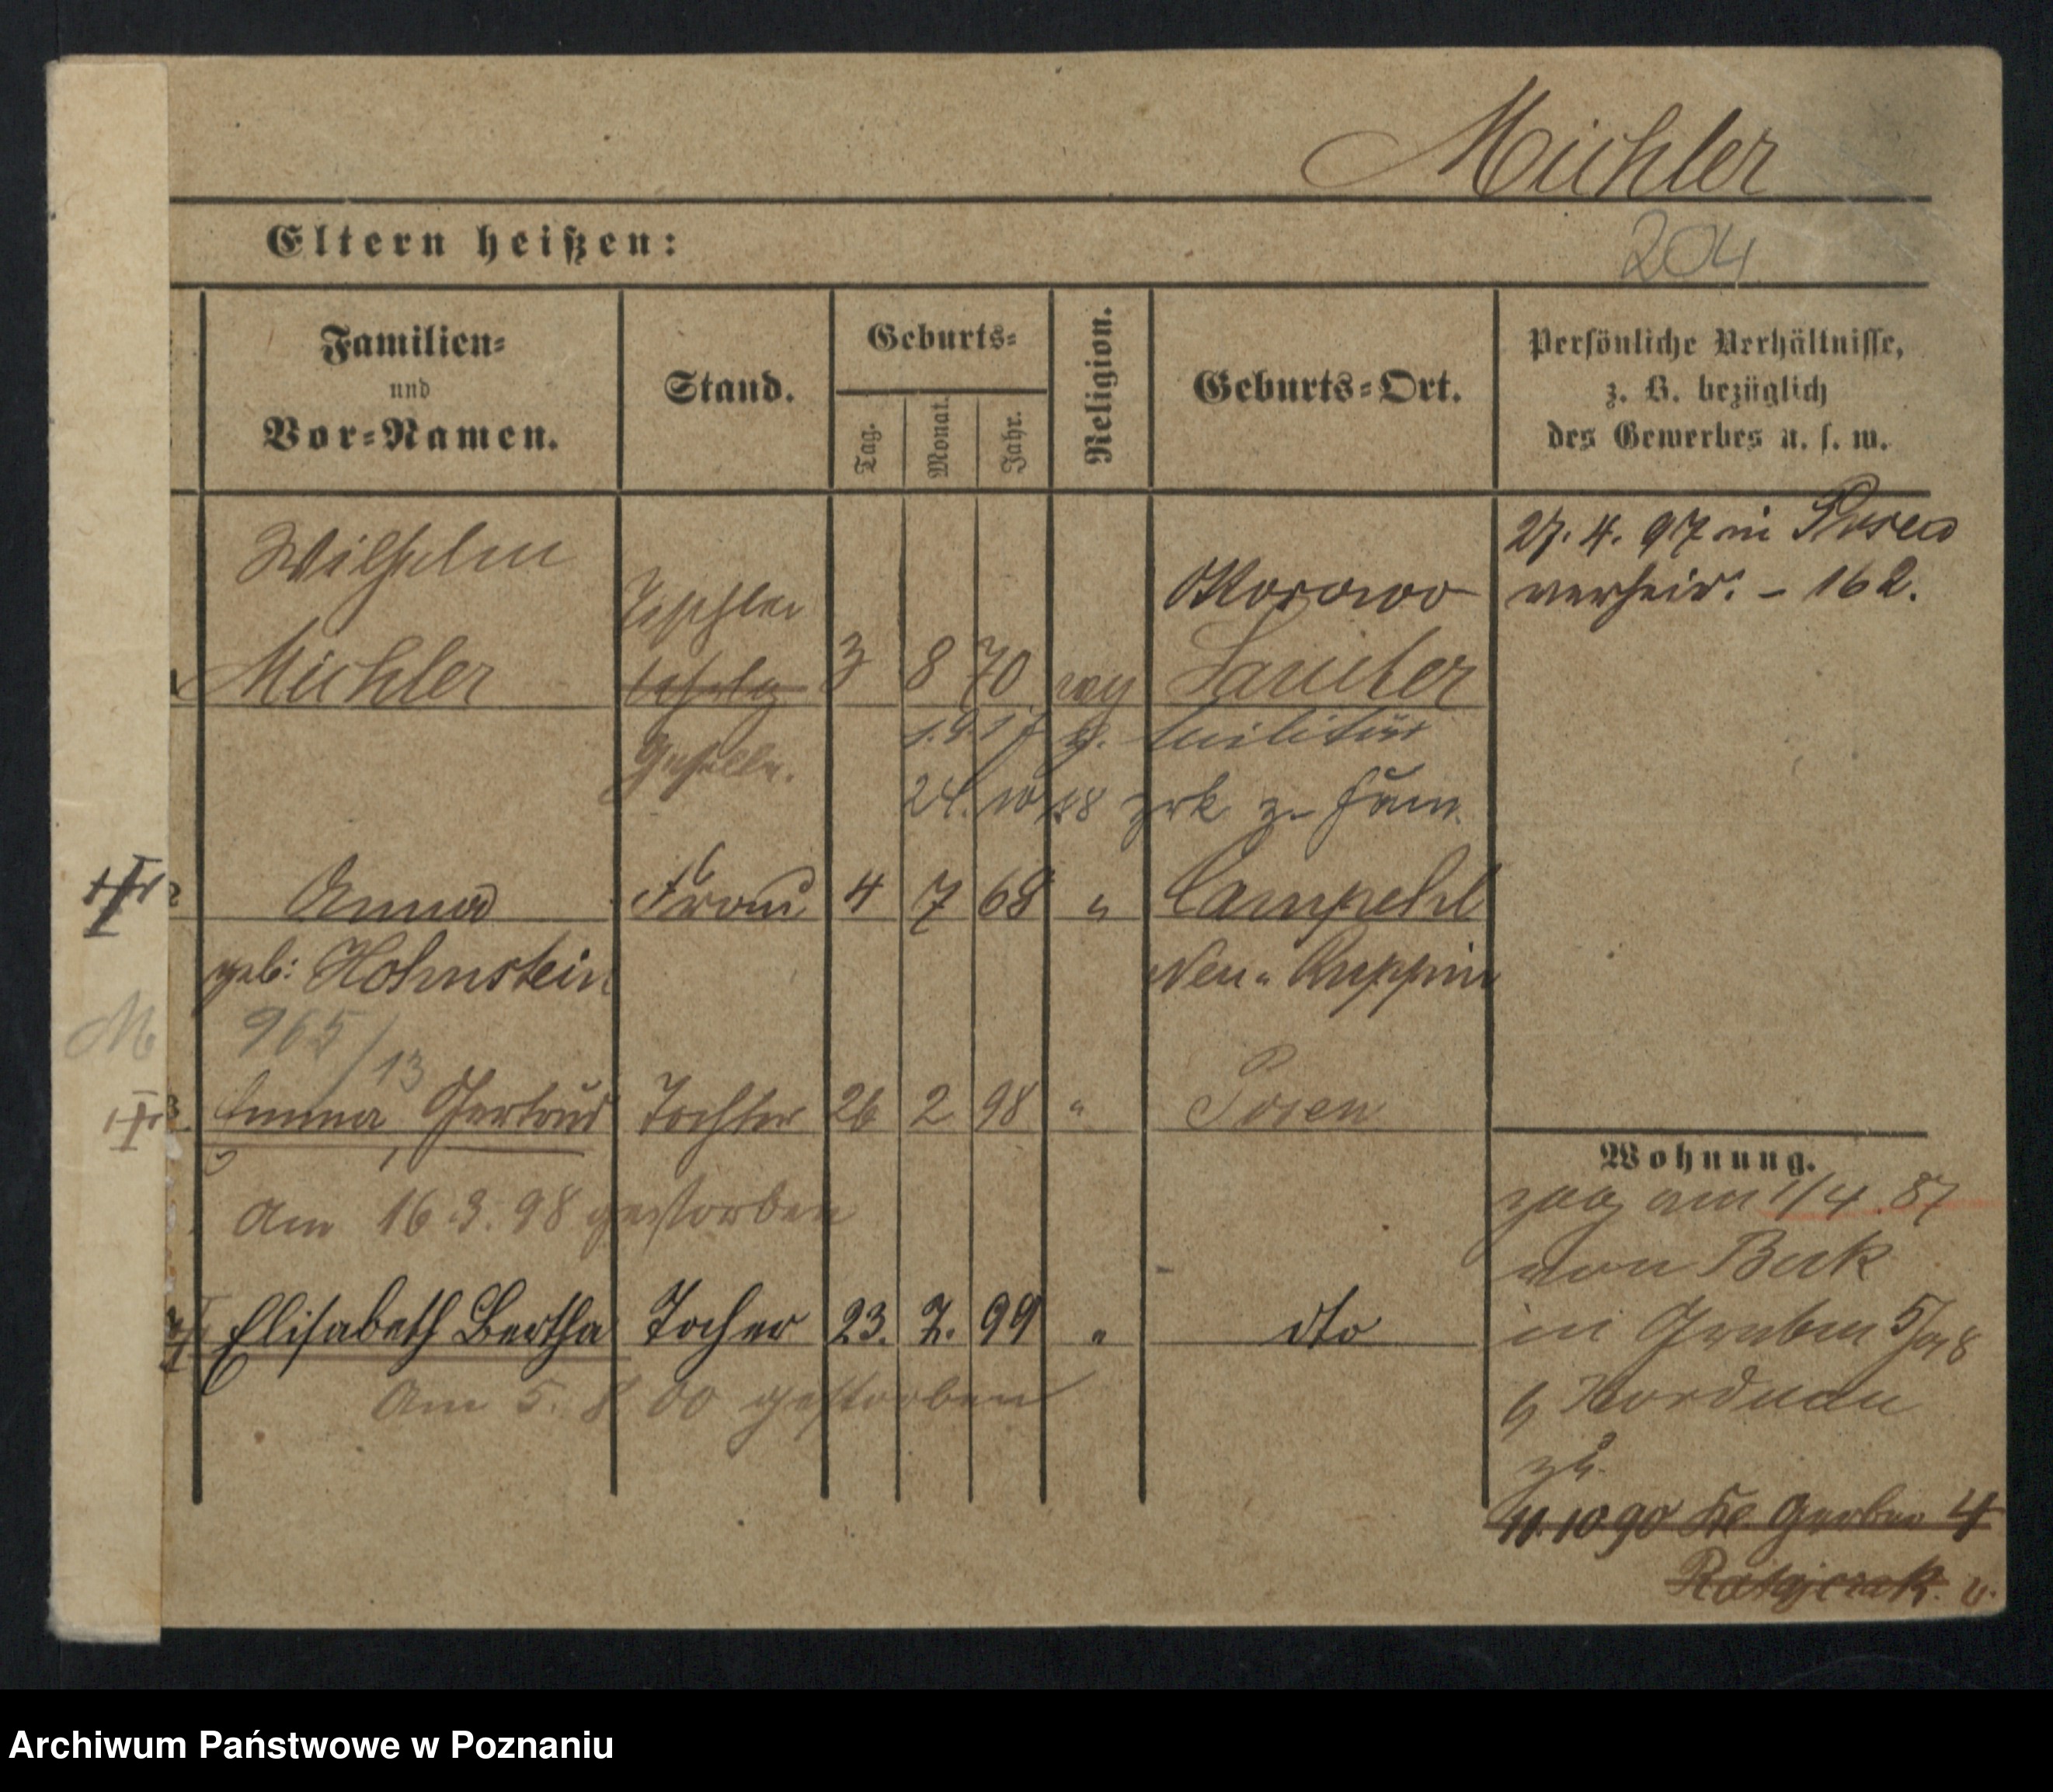 Michler
204
Eltern heißen:
Familien-
und
Vor-Namen.
Stand.
Geburts-
Tag.
Monat.
Jahr.
Religion.
Geburts-Ort.
Persönliche Verhältnisse,
z. B. bezüglich
des Gewerbes u. s. w.
27. 4. 97 in Posen
verheir. - 162.
Wilhelm
Michler
Tischler
Geselle.
3 8 70
Samter
1.9.17 z. Militär
24. 10 18 zrk zu Fam.
Anna
Frau
4 7 68 "
Campehl
geb: Hohnstein
Neu-Ruppin
M
965/13
Emma, Gertrud
Tochter
26 2 98 "
Posen
am 16.3.98 gestorben
Elisabeth Bertha
Tocher
23. 7. 99 "
dto
Am 5. 8 00 gestorben
Wohnung.
zog am 1/4. 87
von Buk
in
zu
11.10 90 Kl. Gerber 4
Ratajczak.
Archiwum Państwowe w Poznaniu